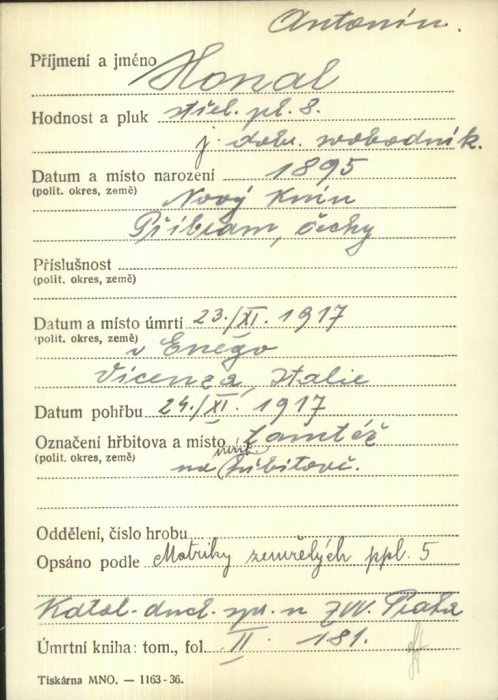 Antonín.
Příjmení a jméno Honal
Hodnost a pluk střel. pl. 8.
j. dobr. svobodník.
Datum a místo narození 1895
(polit. okres, země) Nový Knín
Příbram, Čechy
Příslušnost
(polit. okres, země)
Datum a místo úmrtí 23./XI. 1917
(polit. okres, země)
v Enego
Vicenza, Italie
Datum pohřbu 24./XI. 1917
Označení hřbitova a místo tamtéž
(polit. okres, země) na hřbitově.
Oddělení, číslo hrobu
Opsáno podle Matriky zemřelých ppl. 5
Katol. duch. spr. u ZVV. Praha
Úmrtní kniha: tom., fol. II. 181.
Tiskárna MNO. — 1163-36.